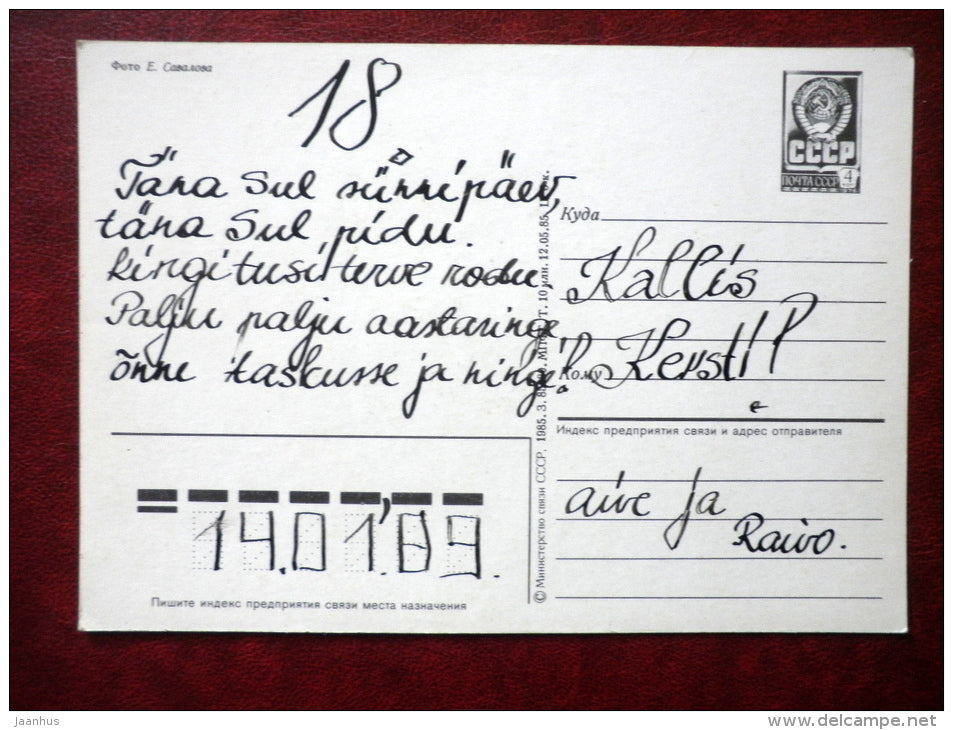 Фото Е. Савалова
18
Täna Sul sünnipäev,
täna Sul pidu.
Kingitusi terve rodu,
Palju palju aastaringe,
õnne taskusse ja hinge!
СССР
ПОЧТА СССР 4
Куда
Kallis
Кому Kersti!!
Индекс предприятия связи и адрес отправителя
aive ja
Raivo.
14.01.89.
Пишите индекс предприятия связи места назначения
© Министерство связи СССР. 1985. З. 12.05.85.
Jaanhus
www.delcampe.net